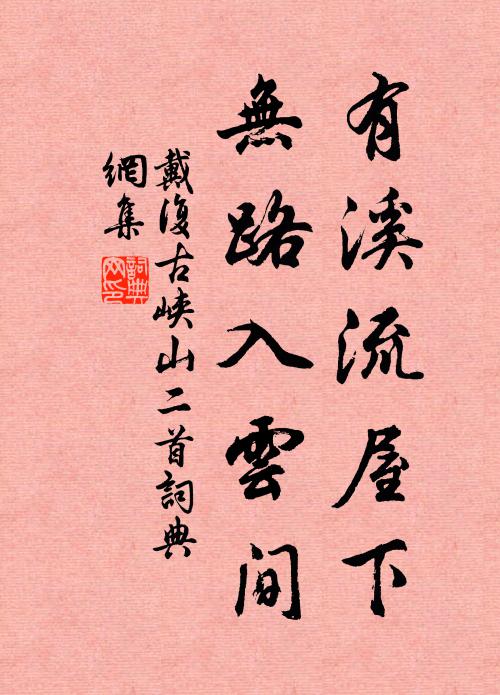 有溪流屋下
無路入雲間
戴復古峽山二首詞典
網集
詞典
网印